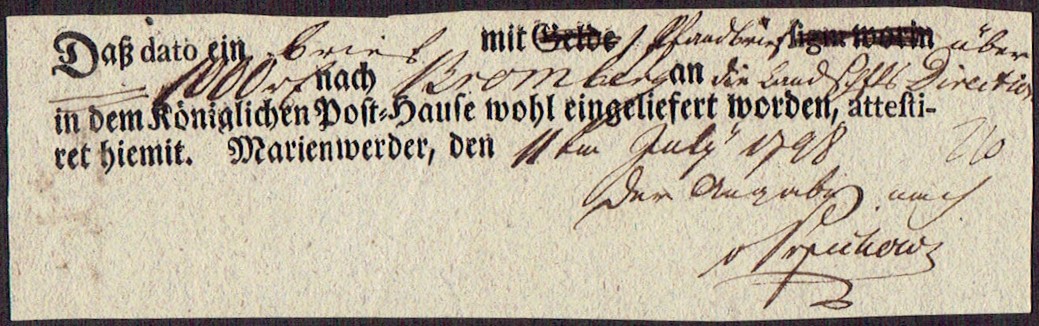 Daß dato ein brief mit Gelde Pfandbrief sign. worin über
1000 rf nach Bromberg an die Landschafts Direction
in dem Königlichen Post-Hause wohl eingeliefert worden, attesti-
ret hiemit. Marienwerder, den 11ten July 1798
Der Angabe nach